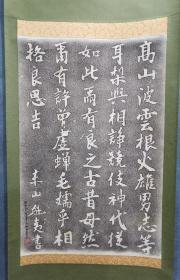 高山波雲根火雄男志等
耳梨與相諍競伎神代従
如此爾有良之古昔母然
爾有許曽虚蝉毛嬬乎相
格良思吉 東山魁夷書